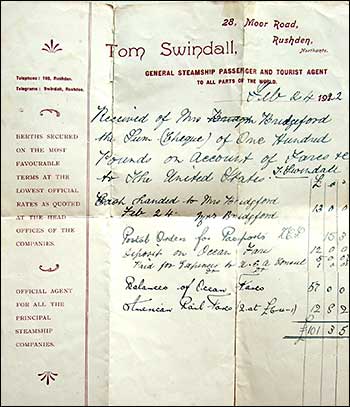 28, Moor Road,
Rushden,
Northants.
Tom Swindall,
GENERAL STEAMSHIP PASSENGER AND TOURIST AGENT
TO ALL PARTS OF THE WORLD.
Telephone: 198, Rushden.
Telegrams: Swindall, Rushden.
BERTHS SECURED
ON THE MOST
FAVOURABLE
TERMS AT THE
LOWEST OFFICIAL
RATES AS QUOTED
AT THE HEAD
OFFICES OF THE
COMPANIES.
OFFICIAL
AGENT
FOR ALL THE
PRINCIPAL
STEAMSHIP
COMPANIES.
Feb 24 1922
Received of Mrs Bridgeford
the Sum (Cheque) of One Hundred
Pounds on account of Fares &c
to The United States. T. Swindall
Cash handed to Mrs Bridgeford
Feb 24. Mrs Bridgeford 13 0 0
Postal Orders for Passports 15 3
Deposit on Ocean Fare 12 0 0
Paid for Passports to U.S.A Consul
Balances of Ocean Fares 57 0 0
American Rail Fares 12 8 2
£101 3 5